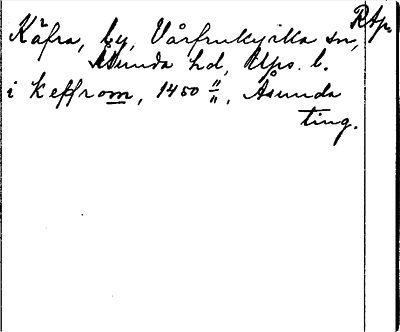 RAp.
Kåfra, by, Vårfrukyrka sn,
Åsunda hd, Upps. l.
i keffrom, 1450 11/11, Åsunda
ting.